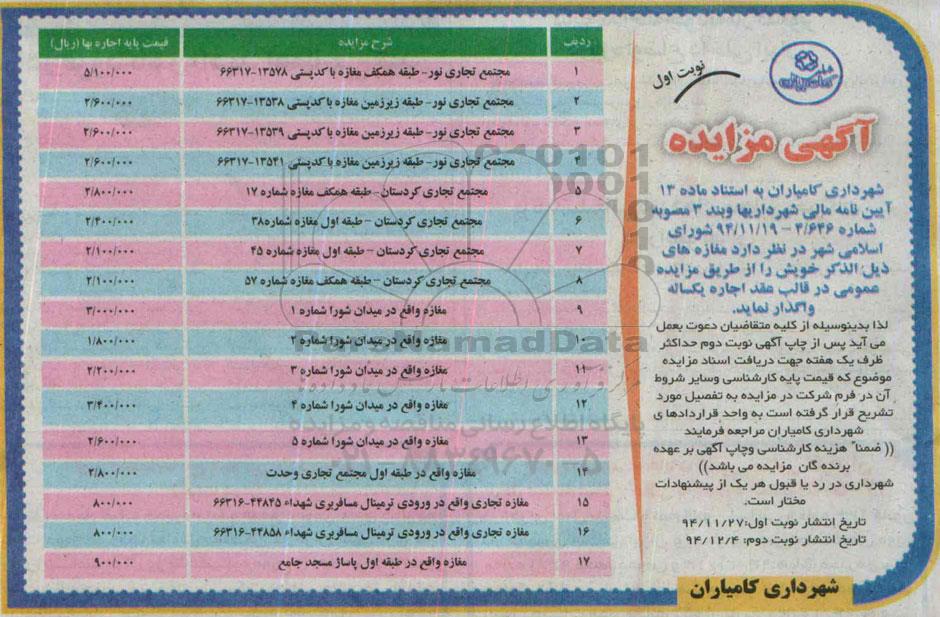 نوبت اول
آگهی مزایده
شهرداری کامیاران به استناد ماده ۱۳
آیین نامه مالی شهرداریها وبند ۳ مصوبه
شماره ۳/۶۴۶ – ۹۴/۱۱/۱۹ شورای
اسلامی شهر در نظر دارد مغازه های
ذیل الذکر خویش را از طریق مزایده
عمومی در قالب عقد اجاره یکساله
واگذار نماید.
لذا بدینوسیله از کلیه متقاضیان دعوت بعمل
می آید پس از چاپ آگهی نوبت دوم حداکثر
ظرف یک هفته جهت دریافت اسناد مزایده
موضوع که قیمت پایه کارشناسی وسایر شروط
آن در فرم شرکت در مزایده به تفصیل مورد
تشریح قرار گرفته است به واحد قراردادها ی
شهرداری کامیاران مراجعه فرمایند
(( ضمنا" هزینه کارشناسی وچاپ آگهی بر عهده
برنده گان مزایده می باشد))
شهرداری در رد یا قبول هر یک از پیشنهادات
مختار است.
تاریخ انتشار نوبت اول:۹۴/۱۱/۲۷
تاریخ انتشار نوبت دوم: ۹۴/۱۲/۴
شهرداری کامیاران
ردیف شرح مزایده قیمت پایه اجاره بها (ریال)
۱ مجتمع تجاری نور- طبقه همکف مغازه با کدپستی ۱۳۵۷۸-۶۶۳۱۷ ۵/۱۰۰/۰۰۰
۲ مجتمع تجاری نور- طبقه زیرزمین مغازه با کدپستی ۱۳۵۳۸-۶۶۳۱۷ ۲/۶۰۰/۰۰۰
۳ مجتمع تجاری نور- طبقه زیرزمین مغازه با کدپستی ۱۳۵۳۹-۶۶۳۱۷ ۲/۶۰۰/۰۰۰
۴ مجتمع تجاری نور- طبقه زیرزمین مغازه با کدپستی ۱۳۵۴۱-۶۶۳۱۷ ۲/۶۰۰/۰۰۰
۵ مجتمع تجاری کردستان- طبقه همکف مغازه شماره ۱۷ ۲/۸۰۰/۰۰۰
۶ مجتمع تجاری کردستان – طبقه اول مغازه شماره۳۸ ۲/۴۰۰/۰۰۰
۷ مجتمع تجاری کردستان – طبقه اول مغازه شماره ۴۵ ۲/۱۰۰/۰۰۰
۸ مجتمع تجاری کردستان – طبقه همکف مغازه شماره ۵۷ ۲/۱۰۰/۰۰۰
۹ مغازه واقع در میدان شورا شماره ۱ ۳/۰۰۰/۰۰۰
۱۰ مغازه واقع در میدان شورا شماره ۲ ۱/۸۰۰/۰۰۰
۱۱ مغازه واقع در میدان شورا شماره ۳ ۲/۲۰۰/۰۰۰
۱۲ مغازه واقع در میدان شورا شماره ۴ ۳/۴۰۰/۰۰۰
۱۳ مغازه واقع در میدان شورا شماره ۵ ۲/۶۰۰/۰۰۰
۱۴ مغازه واقع در طبقه اول مجتمع تجاری وحدت ۲/۸۰۰/۰۰۰
۱۵ مغازه تجاری واقع در ورودی ترمینال مسافربری شهداء ۴۴۸۴۵-۶۶۳۱۶ ۸۰۰/۰۰۰
۱۶ مغازه تجاری واقع در ورودی ترمینال مسافربری شهداء ۴۴۸۵۸-۶۶۳۱۶ ۸۰۰/۰۰۰
۱۷ مغازه واقع در طبقه اول پاساژ مسجد جامع ۹۰۰/۰۰۰
ParsNamadData
پایگاه اطلاع رسانی مناقصه و مزایده